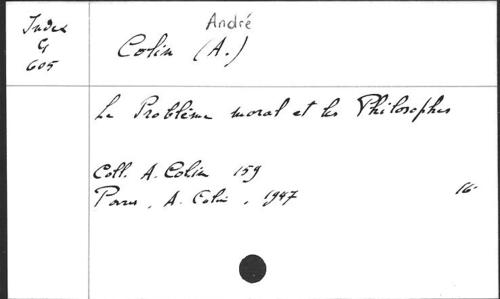 Index
G
605
André
Colin (A.)
Le Problème moral et les Philosophes
Coll. A. Colin 159
Paris, A. Colin, 1947 16